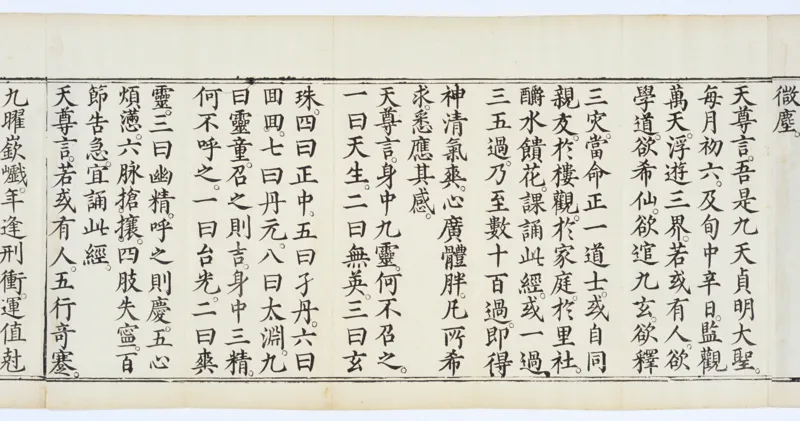 微塵。
天尊言。吾是九天貞明大聖。
每月初六。及旬中辛日。監觀
萬天。浮遊三界。若或有人。欲
學道。欲希仙。欲逭九玄。欲釋
三灾。當命正一道士。或自同
親友。於樓觀。於家庭。於里社。
釂水饋花。課誦此經。或一過。
三五過。乃至數十百過。即得
神清氣爽。心廣體胖。凡所希
求。悉應其感。
天尊言。身中九靈。何不召之。
一曰天生。二曰無英。三曰玄
珠。四曰正中。五曰孑丹。六曰
囬囬。七曰丹元。八曰太淵。九
曰靈童。召之則吉。身中三精。
何不呼之。一曰台光。二曰爽
靈。三曰幽精。呼之則慶。五心
煩懣。六脉搶攘。四肢失寧。百
節告急。宜誦此經。
天尊言。若或有人。五行奇蹇。
九曜嶔巇。年逢刑衝。運值尅